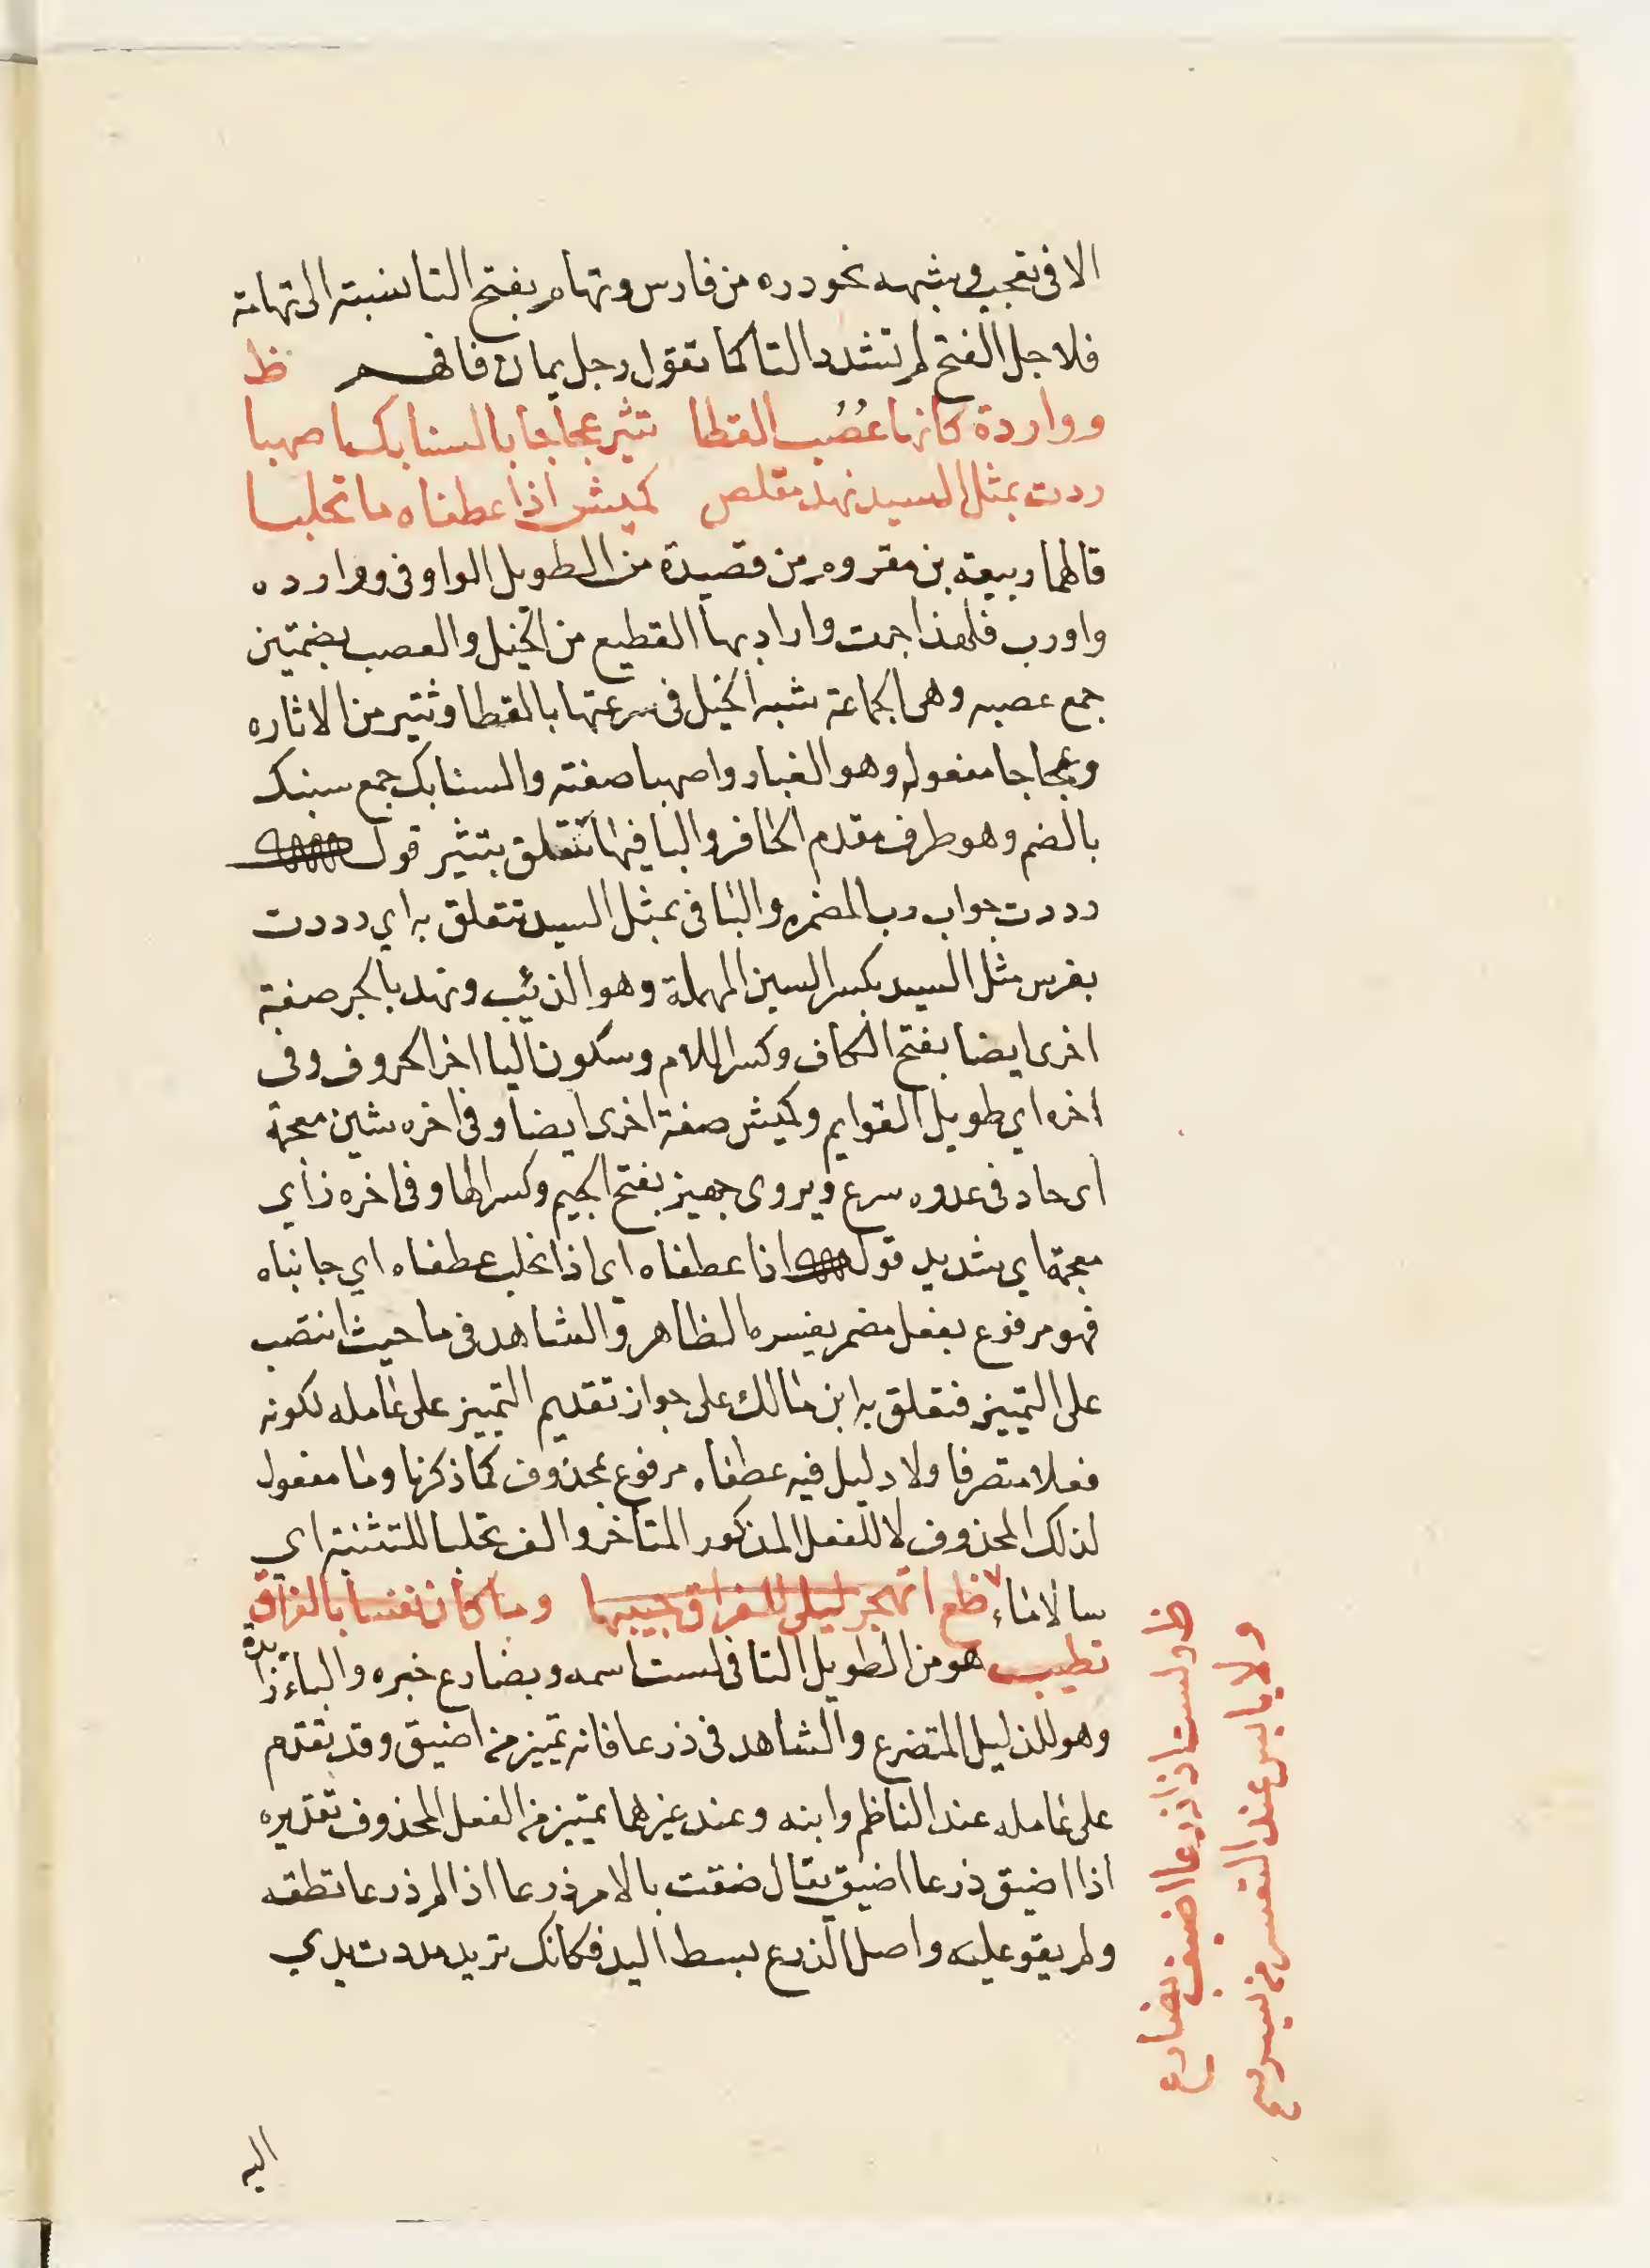 الا فى تعجب وشبهه نحو دره من فارس وتهام بفتح التا نسبة الى تهامة
فلاجل الفتح لم تشدد التا كما تقول رجل يمان فافهم ظ
وواردة كانها عُصُب القطا تثير عجاجا بالسنابك اصهبا
رددت بمثل السيد نهد مقلص كميش اذا عطفاه ما تحلبا
قالهما ربيعة بن مقروم من قصيدة من الطويل الواو فى وواردہ
واو رب فلهذا جرت واراد بها القطيع من الخيل والعصب بضمتين
جمع عصبه وهى الجماعة شبه الخيل فى سرعتها بالقطا وتثير من الاثاره
وعجاجا مفعوله وهو الغبار واصهبا صفته والسنابك جمع سنبك
بالضم وهو طرف مقدم الحافر والبا فيها تتعلق بتثير قول
رددت جواب رب المضمره والبا فى بمثل السيد تتعلق به اي رددت
بفرس مثل السيد بكسر السين المهملة وهو الذئب ونهد بالجر صفة
اخرى ايضا بفتح الكاف وكسر اللام وسكون اليا اخر الحروف وفى
اخره اي طويل القوايم وكميش صفة اخرى ايضا وفى اخره شين معجمة
اى حاد فى عدوه سرع ويروى جهيز بفتح الجيم وكسر الها وفى اخره زاي
معجمة اي شديد قول اذا عطفاه اى اذا تحلب عطفاه اي جانباه
فهو مرفوع بفعل مضمر يفسره الظاهر والشاهد فى ما حيث انتصب
على التمييز فتعلق به ابن مالك على جواز تقديم التمييز على عامله لكونه
فعلا متصرفا ولا دليل فيه عطفاه مرفوع بمحذوف كما ذكرنا وما مفعول
لذلك المحذوف لا للفعل المذكور المتاخر والف تحلبا للتثنية اي
سالا ماء ظع اتهجر ليلى للفراق حبيبها وما كان نفسا بالفراق
تطيب هو من الطويل التا فى لست اسمه وبضارع خبره والباء زايدة
وهو للذليل المتضرع والشاهد فى ذرعا فانه تمييز من اضيق وقد تقدم
على عامله عند الناظم وابنه وعند غيرهما تمييز من الفعل المحذوف تقديره
اذا اضيق ذرعا اضيق يقال ضقت بالامر ذرعا اذا لم ذرعا تطقه
ولم يقو عليه واصل الذرع بسط اليد فكانك تريد مددت يدي
اليه
ظ ولست اذا ذرعا اضيق بضارع
ولا يايس عند التعسر من يسر مع